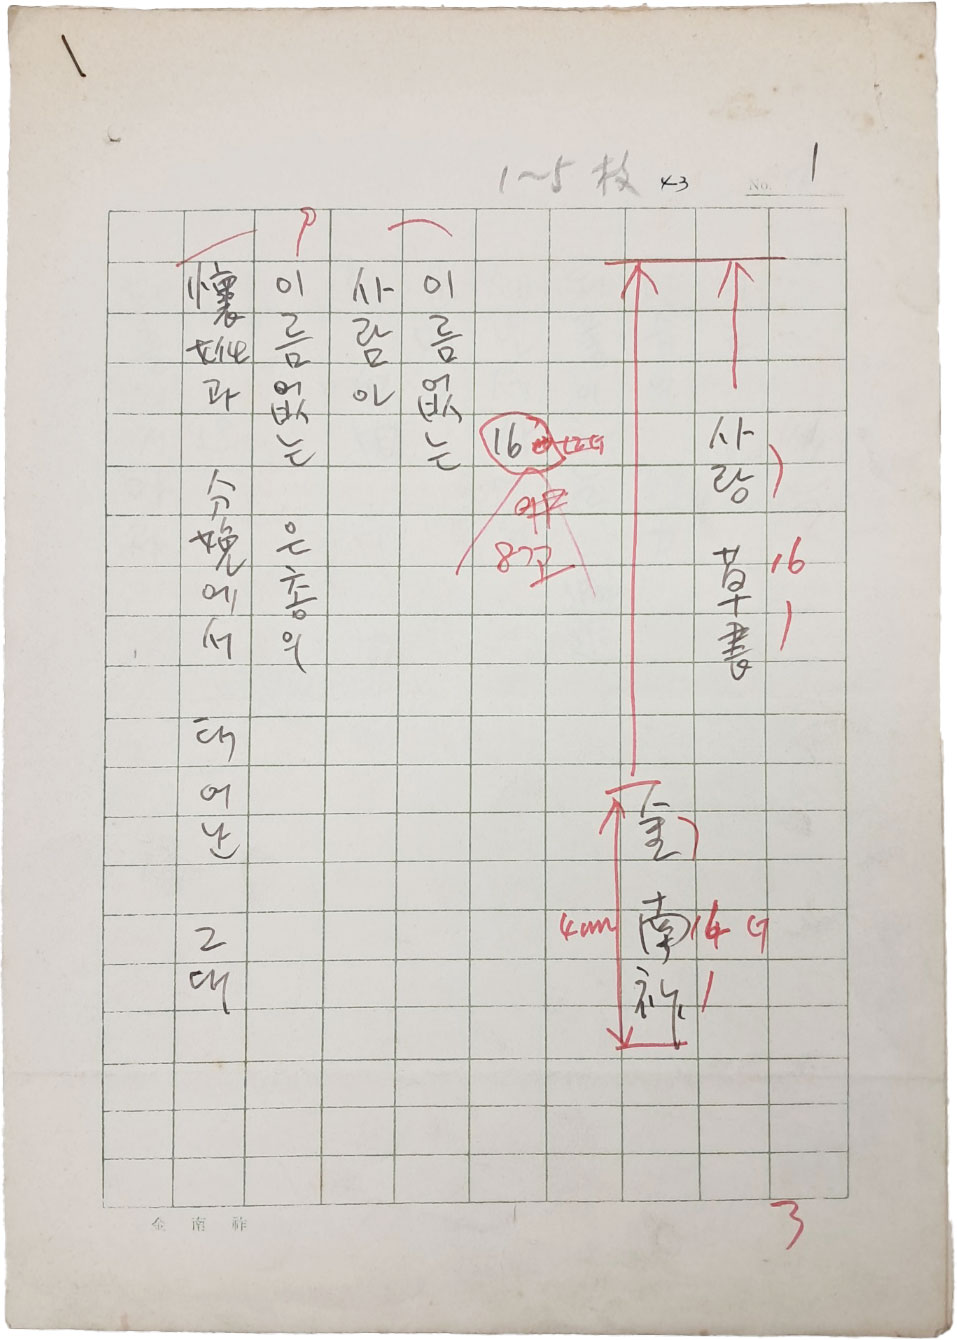 1~5 枚
43
No. 1
사랑 草書
16
金 南祚
14 G
4cm
16
8고
이름없는
사람아
이름없는 은총의
懷妊과 分娩에서 태어난 그대
金南祚
3